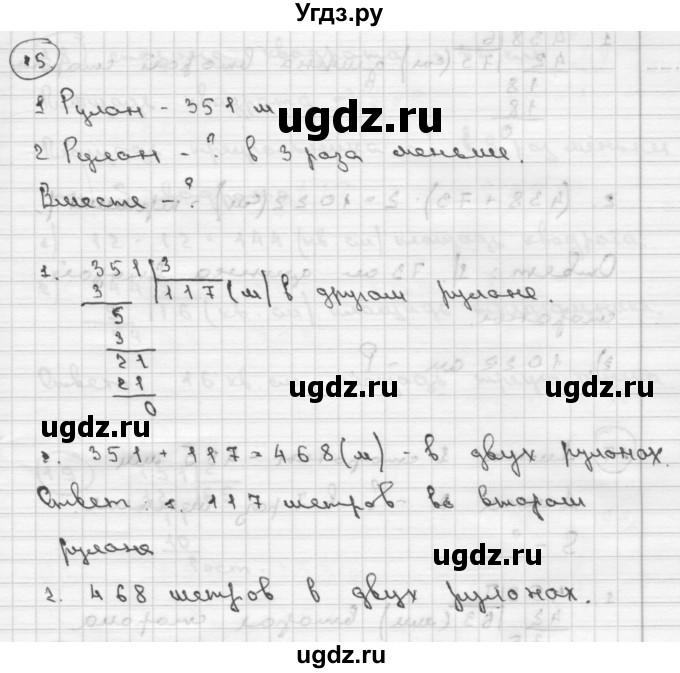 Угдз.ру
15
1 Рулон - 351 м
2 Рулон - ? в 3 раза меньше.
Вместе - ?
1. 351 | 3
3 117 (м) в другом рулоне.
5
3
21
21
0
2. 351 + 117 = 468 (м) - в двух рулонах.
Ответ: 1. 117 метров во втором
рулоне
2. 468 метров в двух рулонах.
ugdz.ru
ugdz.ru
ugdz.ru
ugdz.ru
ugdz.ru
ugdz.ru
ugdz.ru
ugdz.ru